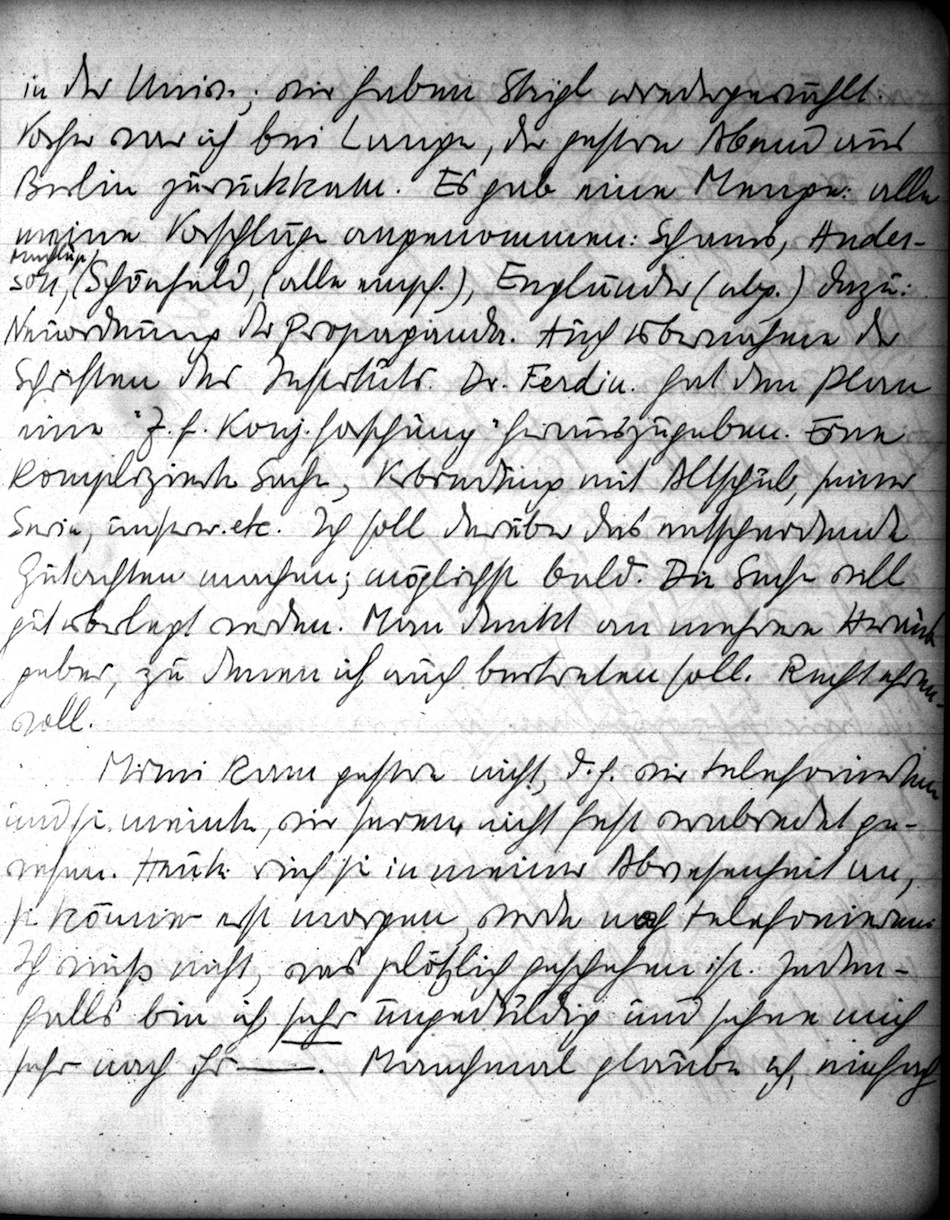 in der Union; wir haben Streich wiedergewählt.
Vorher war ich bei Lange, der gestern Abend aus
Berlin zurückkam. Es gab eine Menge: alle
meine Vorschläge angenommen: Schams, Ander-
son, (Schönfeld, (alle empf.), Engländer (abg.) dazu:
Neuordnung der Propaganda. Auch Übernahme der
Schriften des Instituts. Dr. Ferdin. hat den Plan
eine "Z. f. Konj.forschung" herauszugeben. Eine
komplizierte Sache, Verbindung mit Altschul, seiner
Serie, unserer etc. Ich soll darüber das entscheidende
Gutachten machen; möglichst bald. Die Sache will
gut überlegt werden. Man denkt an mehrere Heraus-
geber, zu denen ich auch beitreten soll. Recht ehren-
voll.
Mimi kam gestern nicht, d.h. wir telefonierten
und sie meinte, wir seien nicht fest verabredet ge-
wesen. Heute rief sie in meiner Abwesenheit an,
sie könne erst morgen, werde noch telefonieren.
Ich weiß nicht, was plötzlich geschehen ist. Jeden-
falls bin ich sehr ungeduldig und sehne mich
sehr nach ihr —. Manchmal glaube ich, einfach